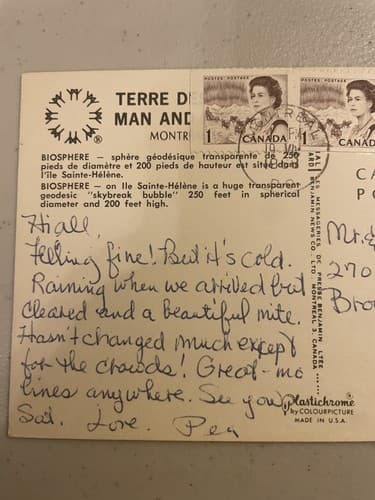 TERRE D
MAN AND
MONTR
POSTES POSTAGE
1 CANADA
POSTES POSTAGE
1 CANADA
MONTREAL
PM
BIOSPHERE — sphère géodésique transparente de 250
pieds de diamètre et 200 pieds de hauteur est situé dans
l'Ile Sainte-Hélène.
BIOSPHERE — on Ile Sainte-Hélène is a huge transparent
geodesic "skybreak bubble" 250 feet in spherical
diameter and 200 feet high.
Hi all,
Felling fine! But it's cold.
Raining when we arrived but
cleared and a beautiful nite.
Hasn't changed much except
for the crowds! Great - no
lines anywhere. See you
Sat. Love. Peg
LES MESSAGERIES DE PRESSE BENJAMIN LTÉE
BENJAMIN NEWS CO. LTD. MONTREAL 3, CANADA
CA
PO
Mr. &
270
Bro
Plastichrome®
by COLOURPICTURE
MADE IN U.S.A.